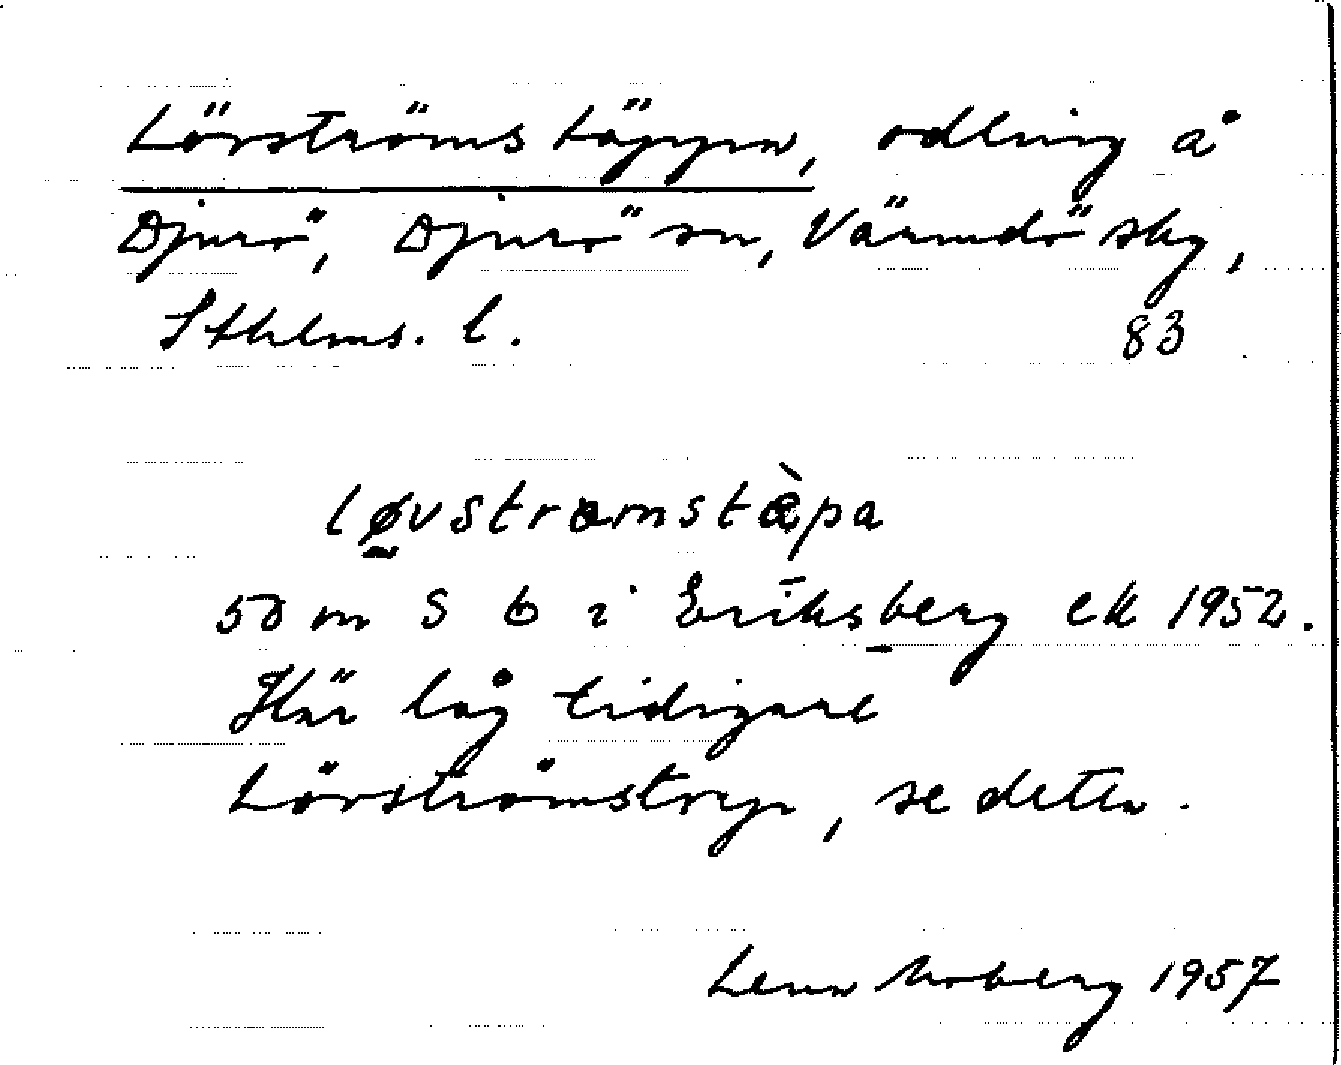 Lövströmstäppan, odling å
Djurö, Djurö sn, Värmdö skg,
Sthlms. l. 83
løvstrɷmstæ̀pa
50 m S b i Eriksberg ek 1952.
Här låg tidigare
Lövströmstorp, se detta.
Lena Moberg 1957